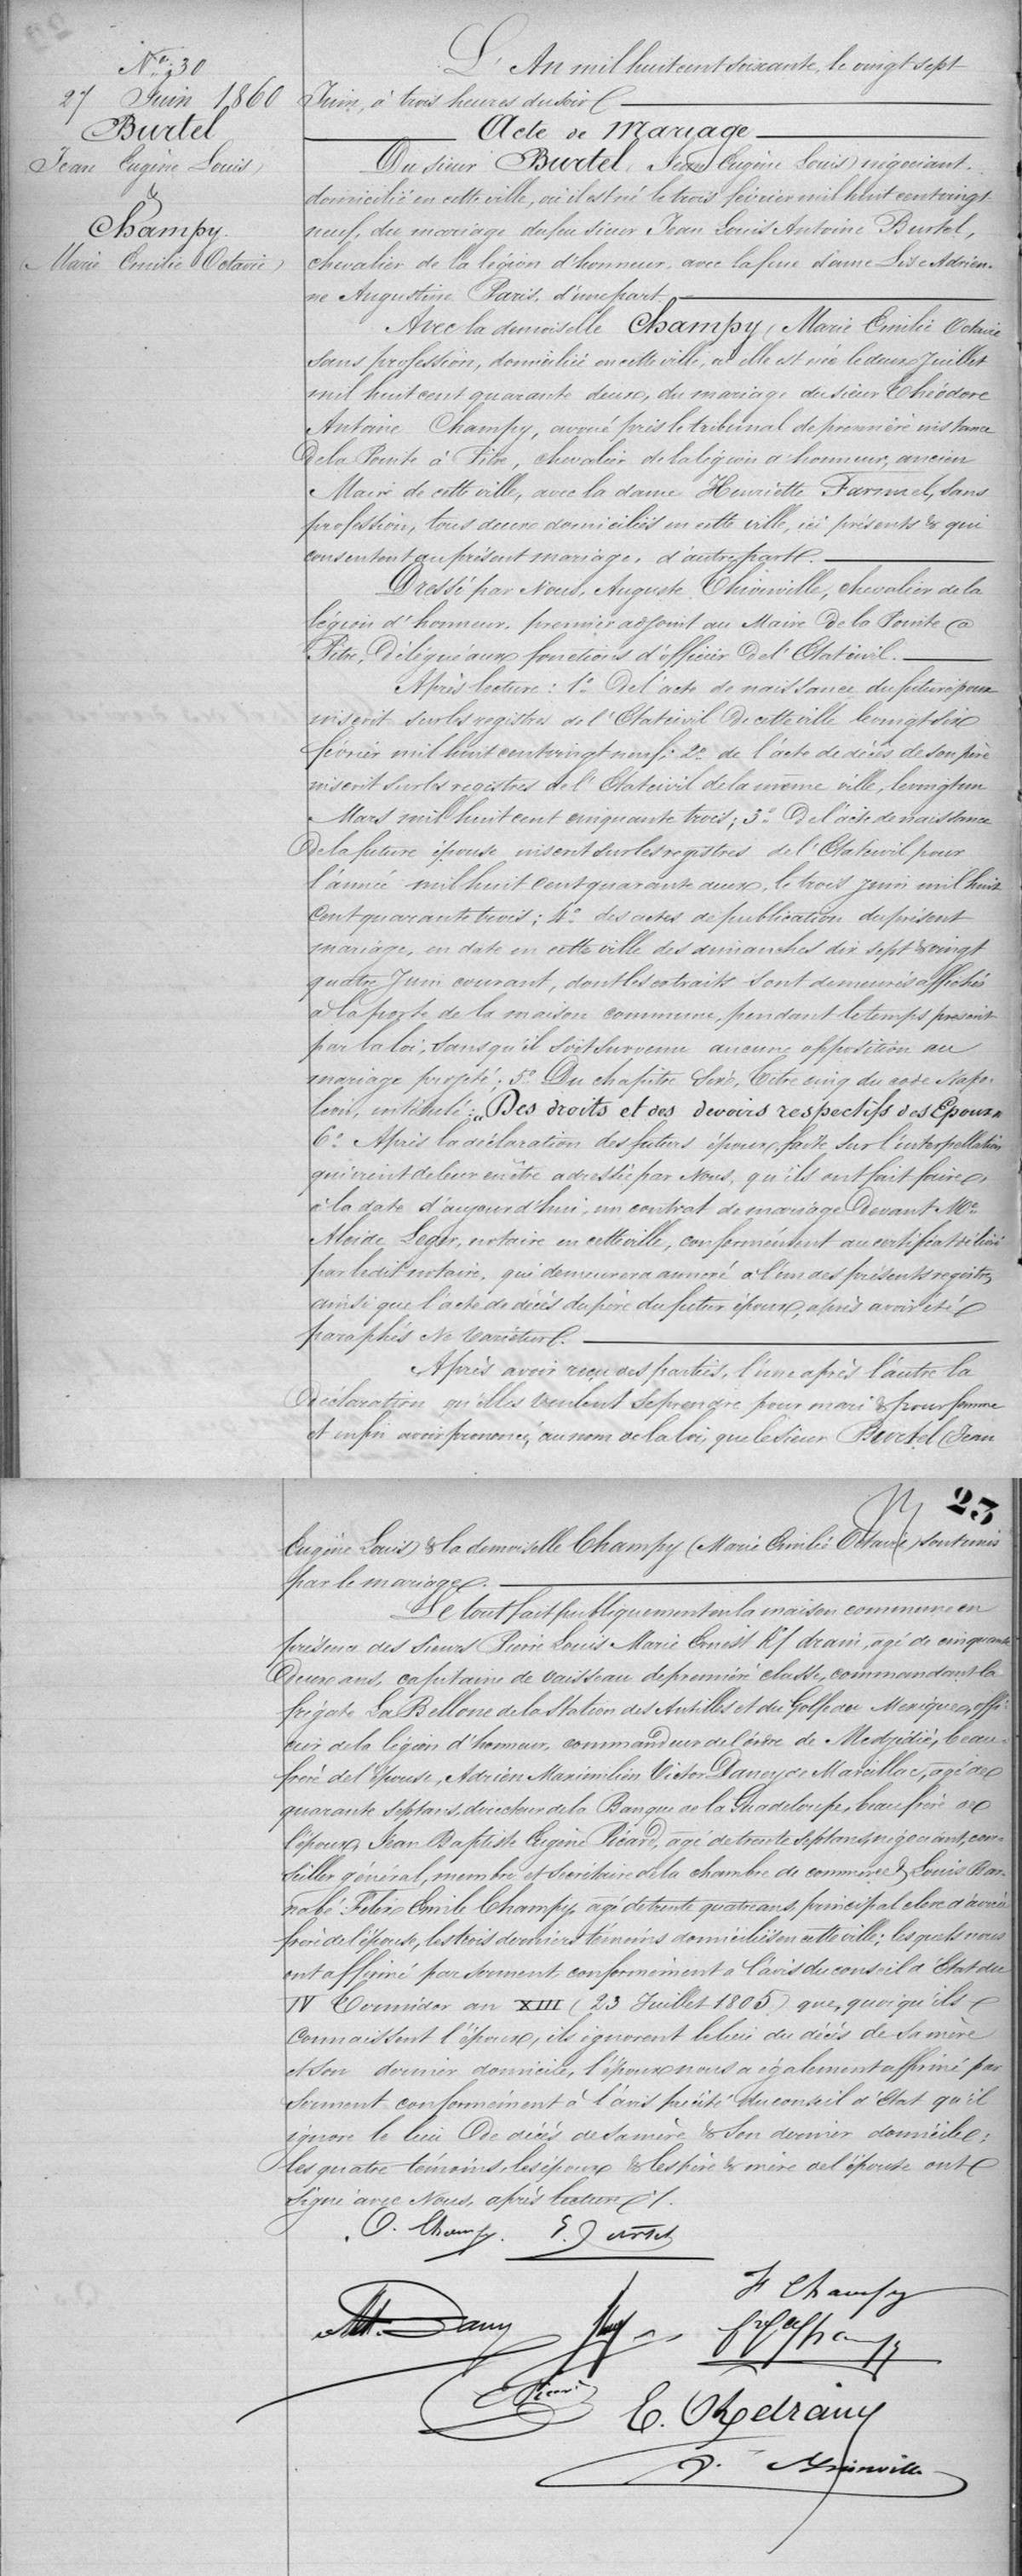 No. 30
27 Juin 1860
Burtel
Jean Eugène Louis)
&
Champy
(Marie Emilie Octavie)
L'An mil huit cent soixante, le vingt sept
Juin, à trois heures du soir
Acte de Mariage
Du sieur Burtel, (Jean Eugène Louis) négociant
domicilié en cette ville, où il est né le trois février mil huit cent vingt
neuf, du mariage du feu sieur Jean Louis Antoine Burtel,
chevalier de la légion d'honneur, avec la feue dame Lise Adrien-
ne Augustine Paris, d'une part
Avec la demoiselle Champy, (Marie Emilie Octavie
sans profession, domiciliée en cette ville, où elle est née le deux Juillet
mil huit cent quarante deux, du mariage du sieur Théodore
Antoine Champy, avoué près le tribunal de première instance
De la Pointe à Pitre, chevalier de la légion d'honneur, ancien
Maire de cette ville, avec la dame Henriette Farmel, sans
profession, tous deux domiciliés en cette ville, ici présents & qui
consentent au présent mariage, d'autre part.
Dressé par Nous, Auguste Thionville, chevalier de la
légion d'honneur, premier adjoint au Maire De la Pointe à
Pitre, Délégué aux fonctions d'officier De l'Etat civil.
Après lecture: 1o De l'acte de naissance du futur époux
inscrit sur les registres de l'Etat civil De cette ville le vingt six
février mil huit cent vingt neuf; 2o de l'acte de décès de son père
inscrit sur les registres de l'Etat civil de la même ville, le vingt un
Mars mil huit cent cinquante trois; 3o De l'acte de naissance
De la future épouse inscrit sur les registres de l'Etat civil pour
l'année mil huit cent quarante deux, le trois Juin mil huit
Cent quarante trois; 4o des actes de publication du présent
mariage, en date en cette ville des dimanches dix sept & vingt
quatre Juin courant, dont les extraits sont demeurés affichés
à la porte de la maison commune, pendant le temps prescrit
par la loi, sans qu'il soit survenu aucune opposition au
mariage projeté; 5o Du chapitre Six, Titre cinq du code Napo-
léon, intitulé: "Des droits et des devoirs respectifs des Epoux"
6o Après la déclaration des futurs époux, faite sur l'interpellation
qui vient de leur en être adressée par Nous, qu'ils ont fait faire,
à la date d'aujourd'hui, un contrat de mariage Devant Me
Alcide Leger, notaire en cette ville, conformément au certificat délivré
par ledit notaire, qui demeurera annexé à l'un des présents registres
ainsi que l'acte de décès du père du futur époux, après avoir été
paraphés Ne Varietur.
Après avoir reçu des parties, l'une après l'autre la
Déclaration qu'elles veulent se prendre pour mari & pour femme
et enfin avoir prononcé, au nom de la loi, que le sieur Burtel (Jean
23
Eugène Louis) & la demoiselle Champy (Marie Emilie Octavie) sont unis
par le mariage.
Le tout fait publiquement en la maison commune en
présence des sieurs Pierre Louis Marie Ernest Rf drain, agé de cinquante
Deux ans, capitaine de vaisseau de première classe, commandant la
frégate La Bellone de la Station des Antilles et du Golfe du Mexique, offi-
cier de la légion d'honneur, commandeur de l'ordre de Medjidié, beau-
frère de l'épouse, Adrien Maximilien Victor Daney de Marcillac, agé de
quarante sept ans, directeur de la Banque de la Guadeloupe, beau frère de
l'époux, Jean Baptiste Eugène Picard, agé de trente sept ans, négociant, con-
seiller général, membre et secrétaire de la chambre de commerce & Louis Bar-
nabé Félix Emile Champy, agé de trente quatre ans, principal clerc d'avoué
frère de l'épouse, les trois derniers témoins domiciliés en cette ville; lesquels nous
ont affirmé par serment, conformément à l'avis du conseil d'Etat du
IV Thermidor an XIII (23 Juillet 1805) que, quoiqu'ils
connaissent l'époux, ils ignorent le lieu du décès de sa mère
et son dernier domicile, l'époux nous a également affirmé par
serment conformément à l'avis précité du conseil d'Etat qu'il
ignore le lieu De décès de sa mère & son dernier domicile;
les quatre témoins, les époux & les père & mère de l'épouse ont
signé avec Nous, après lecture ./.
O. Champy. E. Burtel
H Champy
Daney
Champy
E Picard
E.
A. Thionville